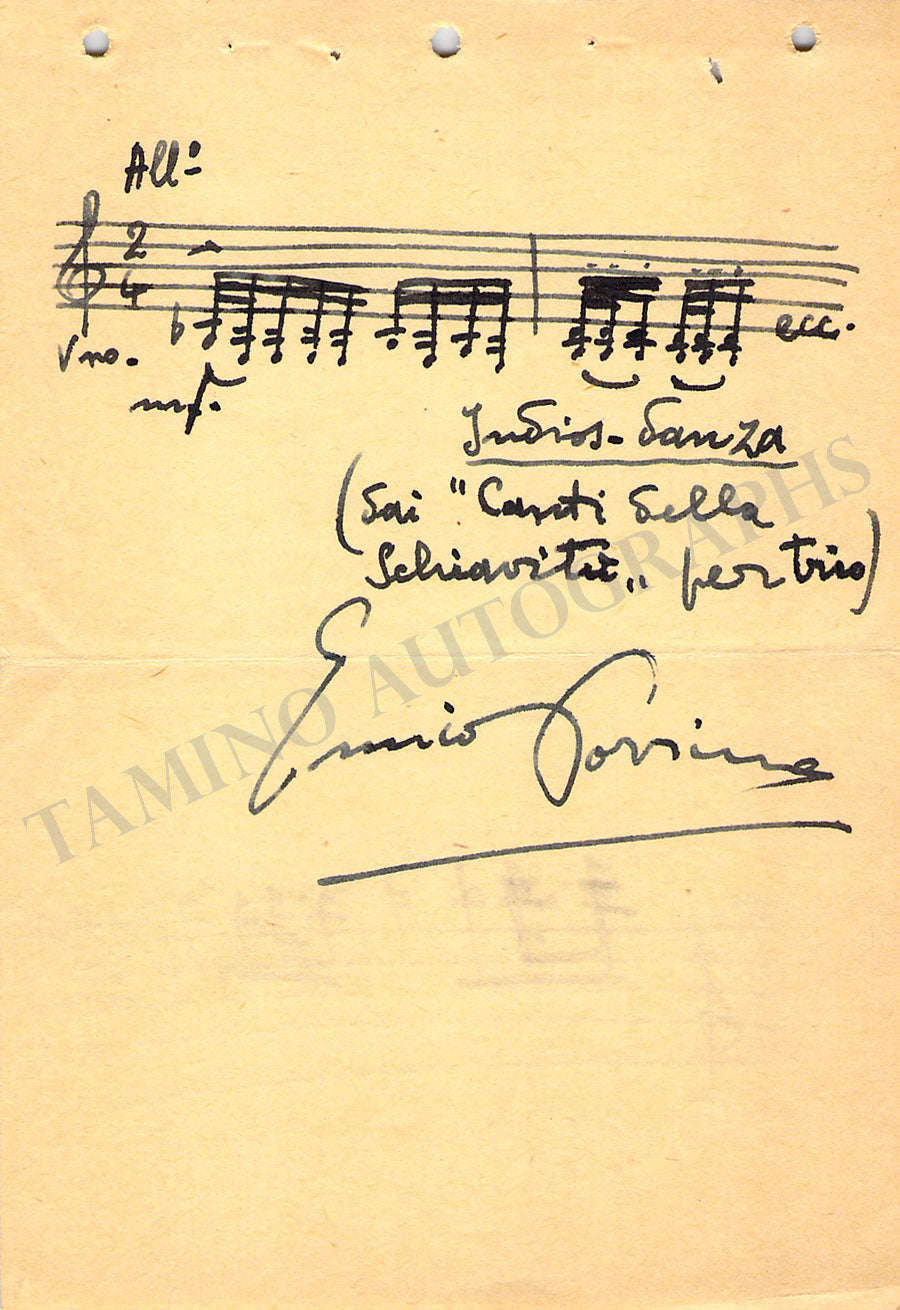 Allº
2
4
Vno.
mf.
ecc.
Indios-danza
(dai "Canti della
Schiavitù„ per trio)
TAMINO AUTOGRAPHS
Ennico Porrino